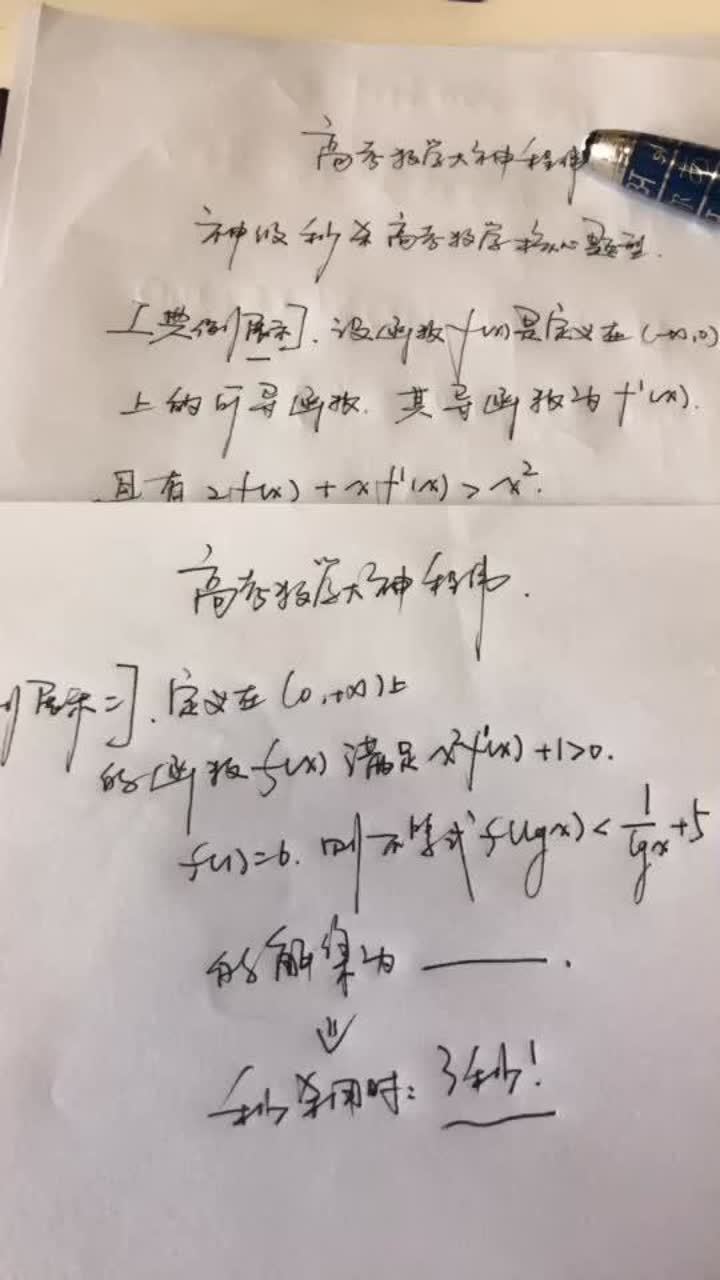 高考数学大神程伟
神级秒杀高考数学核心题型.
[典例展示]. 设函数f(x)是定义在(-∞,0)
上的可导函数. 其导函数为f'(x).
且有 2f(x) + xf'(x) > x².
高考数学大神程伟.
例展示二]. 定义在(0,+∞)上
的函数f(x) 满足 x²f'(x) +1>0.
f(1)=6. 则不等式f(lgx) < 1/lgx +5
的解集为 ———.
⇓
秒杀用时: 3秒!